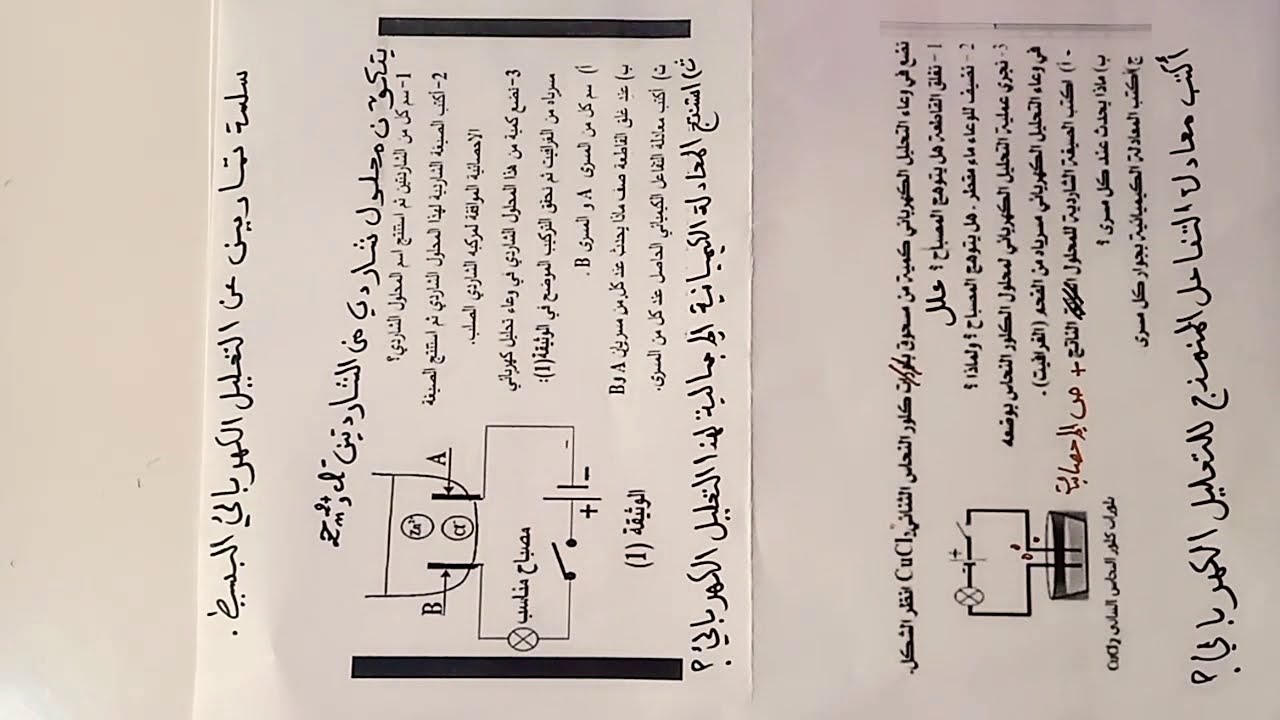 سلسلة تمارين عن التحليل الكهربائي البسيط.
يتكون محلول شاردي من الشاردتين Zn²⁺ و Cl⁻
1- سم كل من الشاردتين ثم استنتج اسم المحلول الشاردي؟
2- أكتب الصيغة الشاردية لهذا المحلول الشاردي ثم استنتج الصيغة
الاحصائية الموافقة لمركبه الشاردي الصلب.
3- نضع كمية من هذا المحلول الشاردي في وعاء تحليل كهربائي
مسرياه من الغرافيت ثم نحقق التركيب الموضح في الوثيقة (1):
أ) سم كل من المسرى A و المسرى B .
ب) عند غلق القاطعة صف ماذا يحدث عند كل من مسريان A و B
ت) أكتب معادلة التفاعل الكيميائي الحاصل عند كل من المسرى.
ث) استنتج المعادلة الكيميائية الإجمالية لهذا التحليل الكهربائي؟
B
A
Zn²⁺
Cl⁻
مصباح مناسب
+
-
الوثيقة (1)
نضع في وعاء التحليل الكهربائي كمية من مسحوق كلور النحاس الثنائي CuCl₂ انظر الشكل.
1- نغلق القاطعة هل يتوهج المصباح ؟ علل
2- نضيف للوعاء ماء مقطر . هل يتوهج المصباح ؟ ولماذا ؟
3- نجري عملية التحليل الكهربائي لمحلول الكلور النحاس بوضعه
في وعاء التحليل الكهربائي مسرياه من الفحم (الغرافيت).
- أ) اكتب الصيغة الشاردية للمحلول الناتج + ص الإحصائية
ب) ماذا يحدث عند كل مسرى ؟
ج) اكتب المعادلة الكيميائية بجوار كل مسرى
بلورات كلور النحاس الثنائي CuCl₂
أكتب معادلة التفاعل المنمذج للتحليل الكهربائي؟